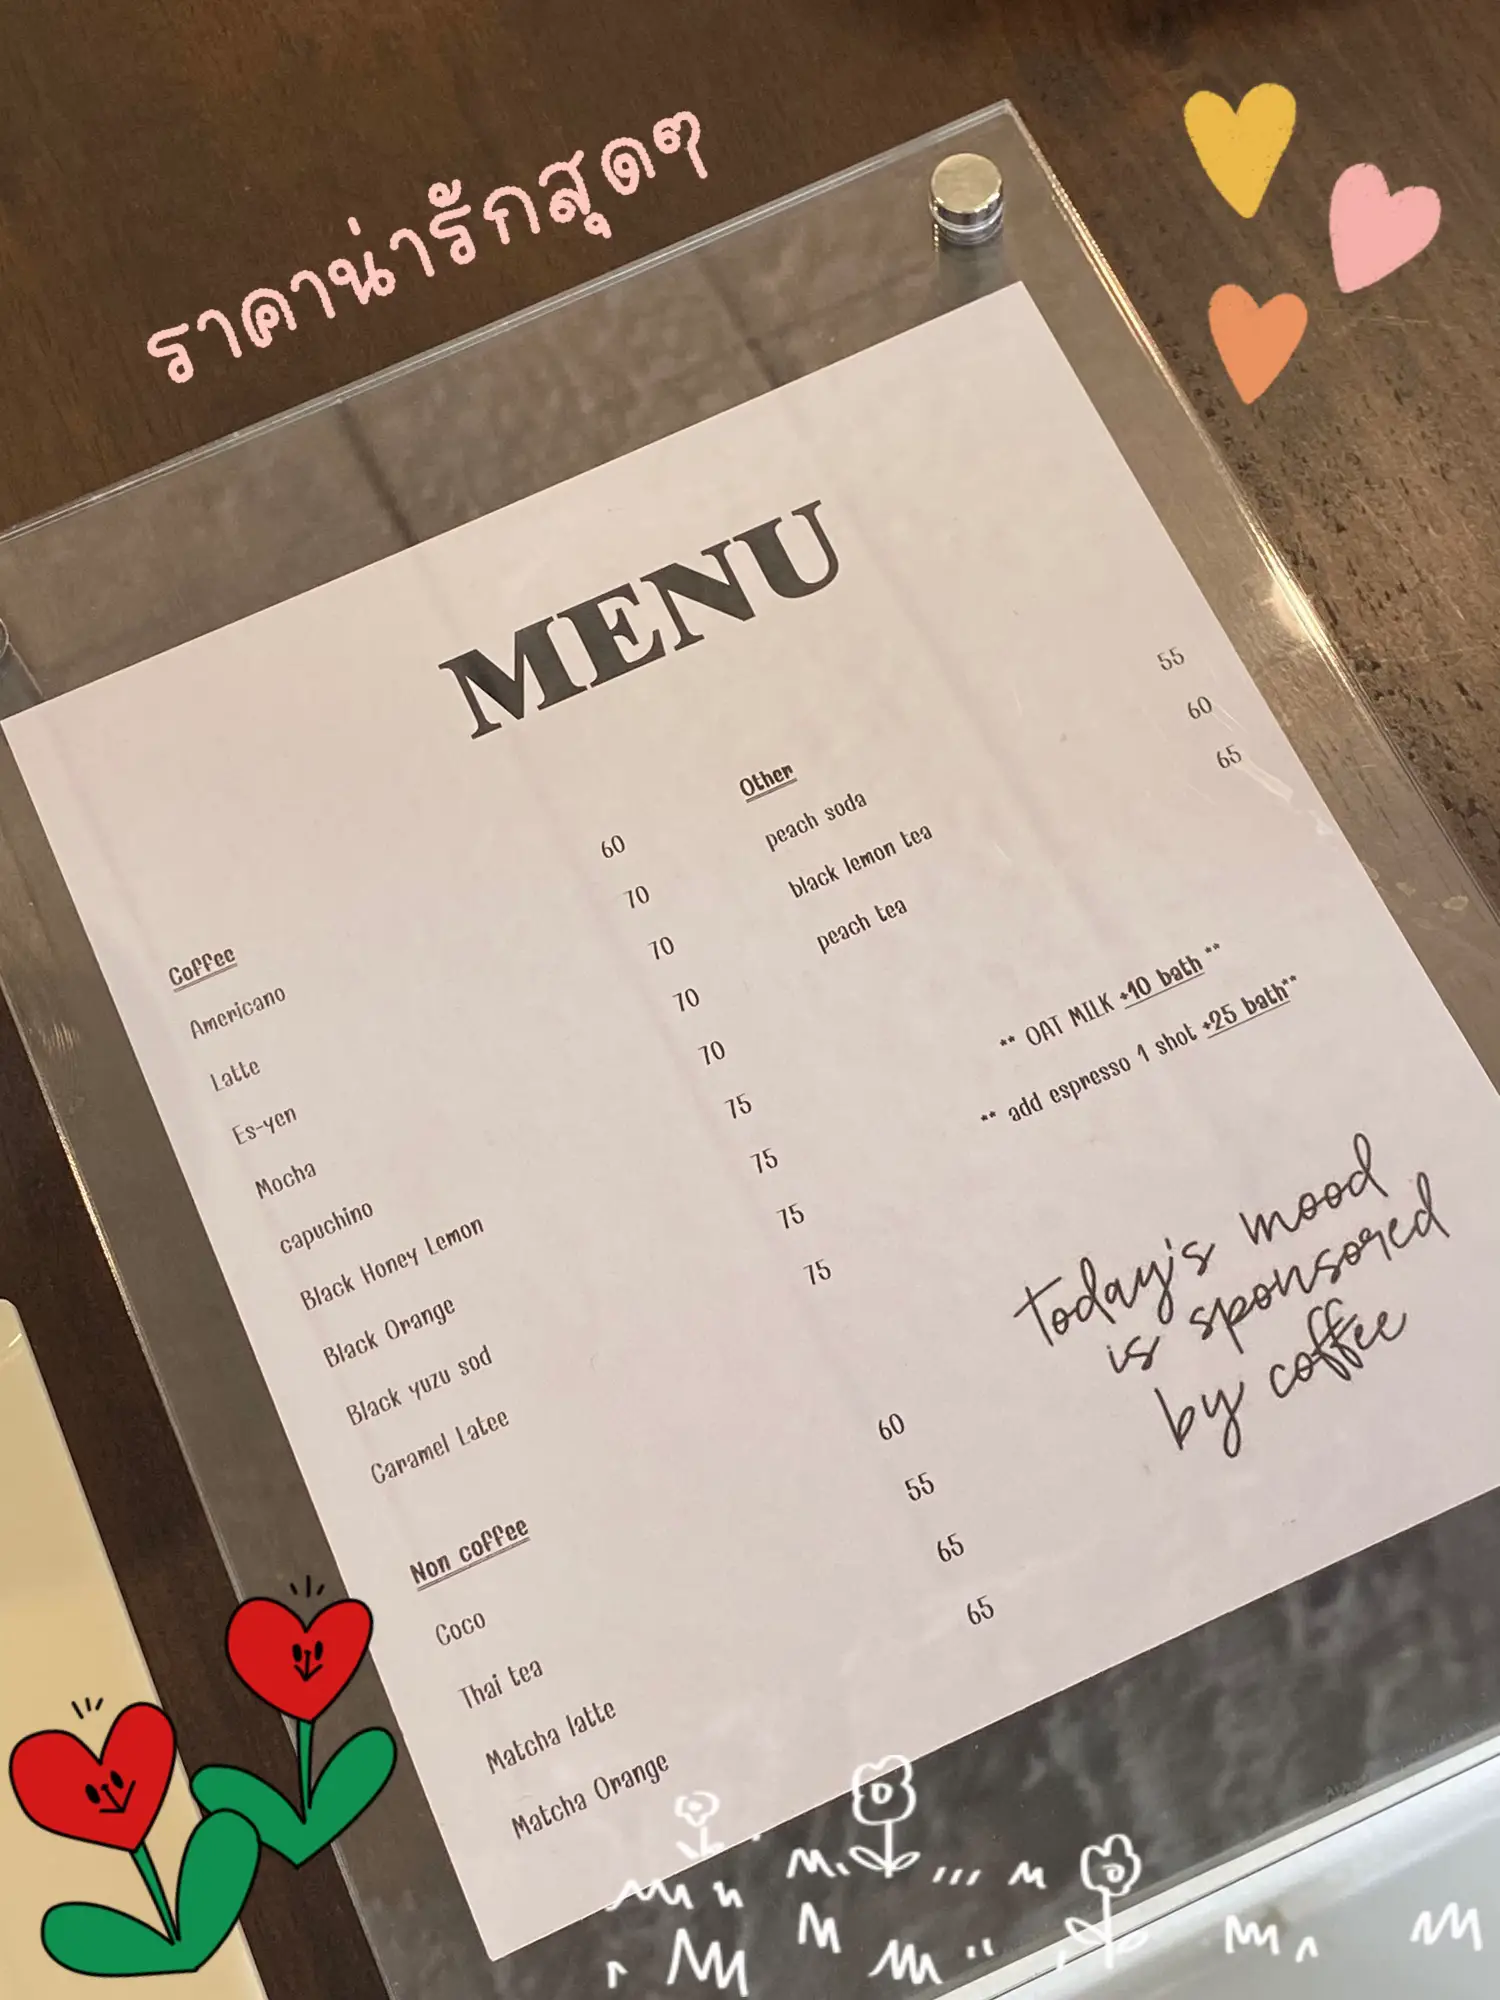 ราคาน่ารักสุดๆ
MENU
Coffee
Americano 60
Latte 70
Es-yen 70
Mocha 70
capuchino 70
Black Honey Lemon 75
Black Orange 75
Black yuzu sod 75
Caramel Latee 75
Non coffee
Coco 60
Thai tea 55
Matcha latte 65
Matcha Orange 65
Other
peach soda 55
black lemon tea 60
peach tea 65
** OAT MILK +10 bath **
** add espresso 1 shot +25 bath**
today's mood
is sponsored
by coffee